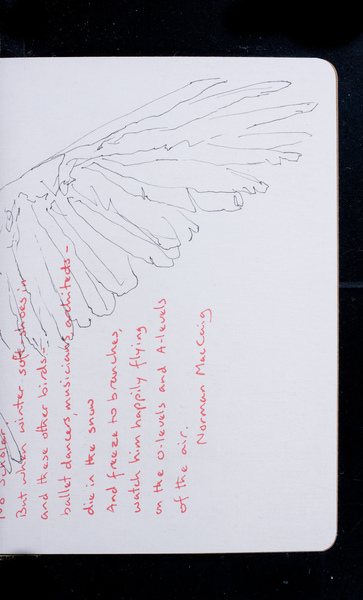 scholar.
But when winter soft-shoes in
and these other birds -
ballet dancers, musicians, architects -
die in the snow
And freeze to branches,
watch him happily flying
on the O-levels and A-levels
of the air.
Norman MacCaig